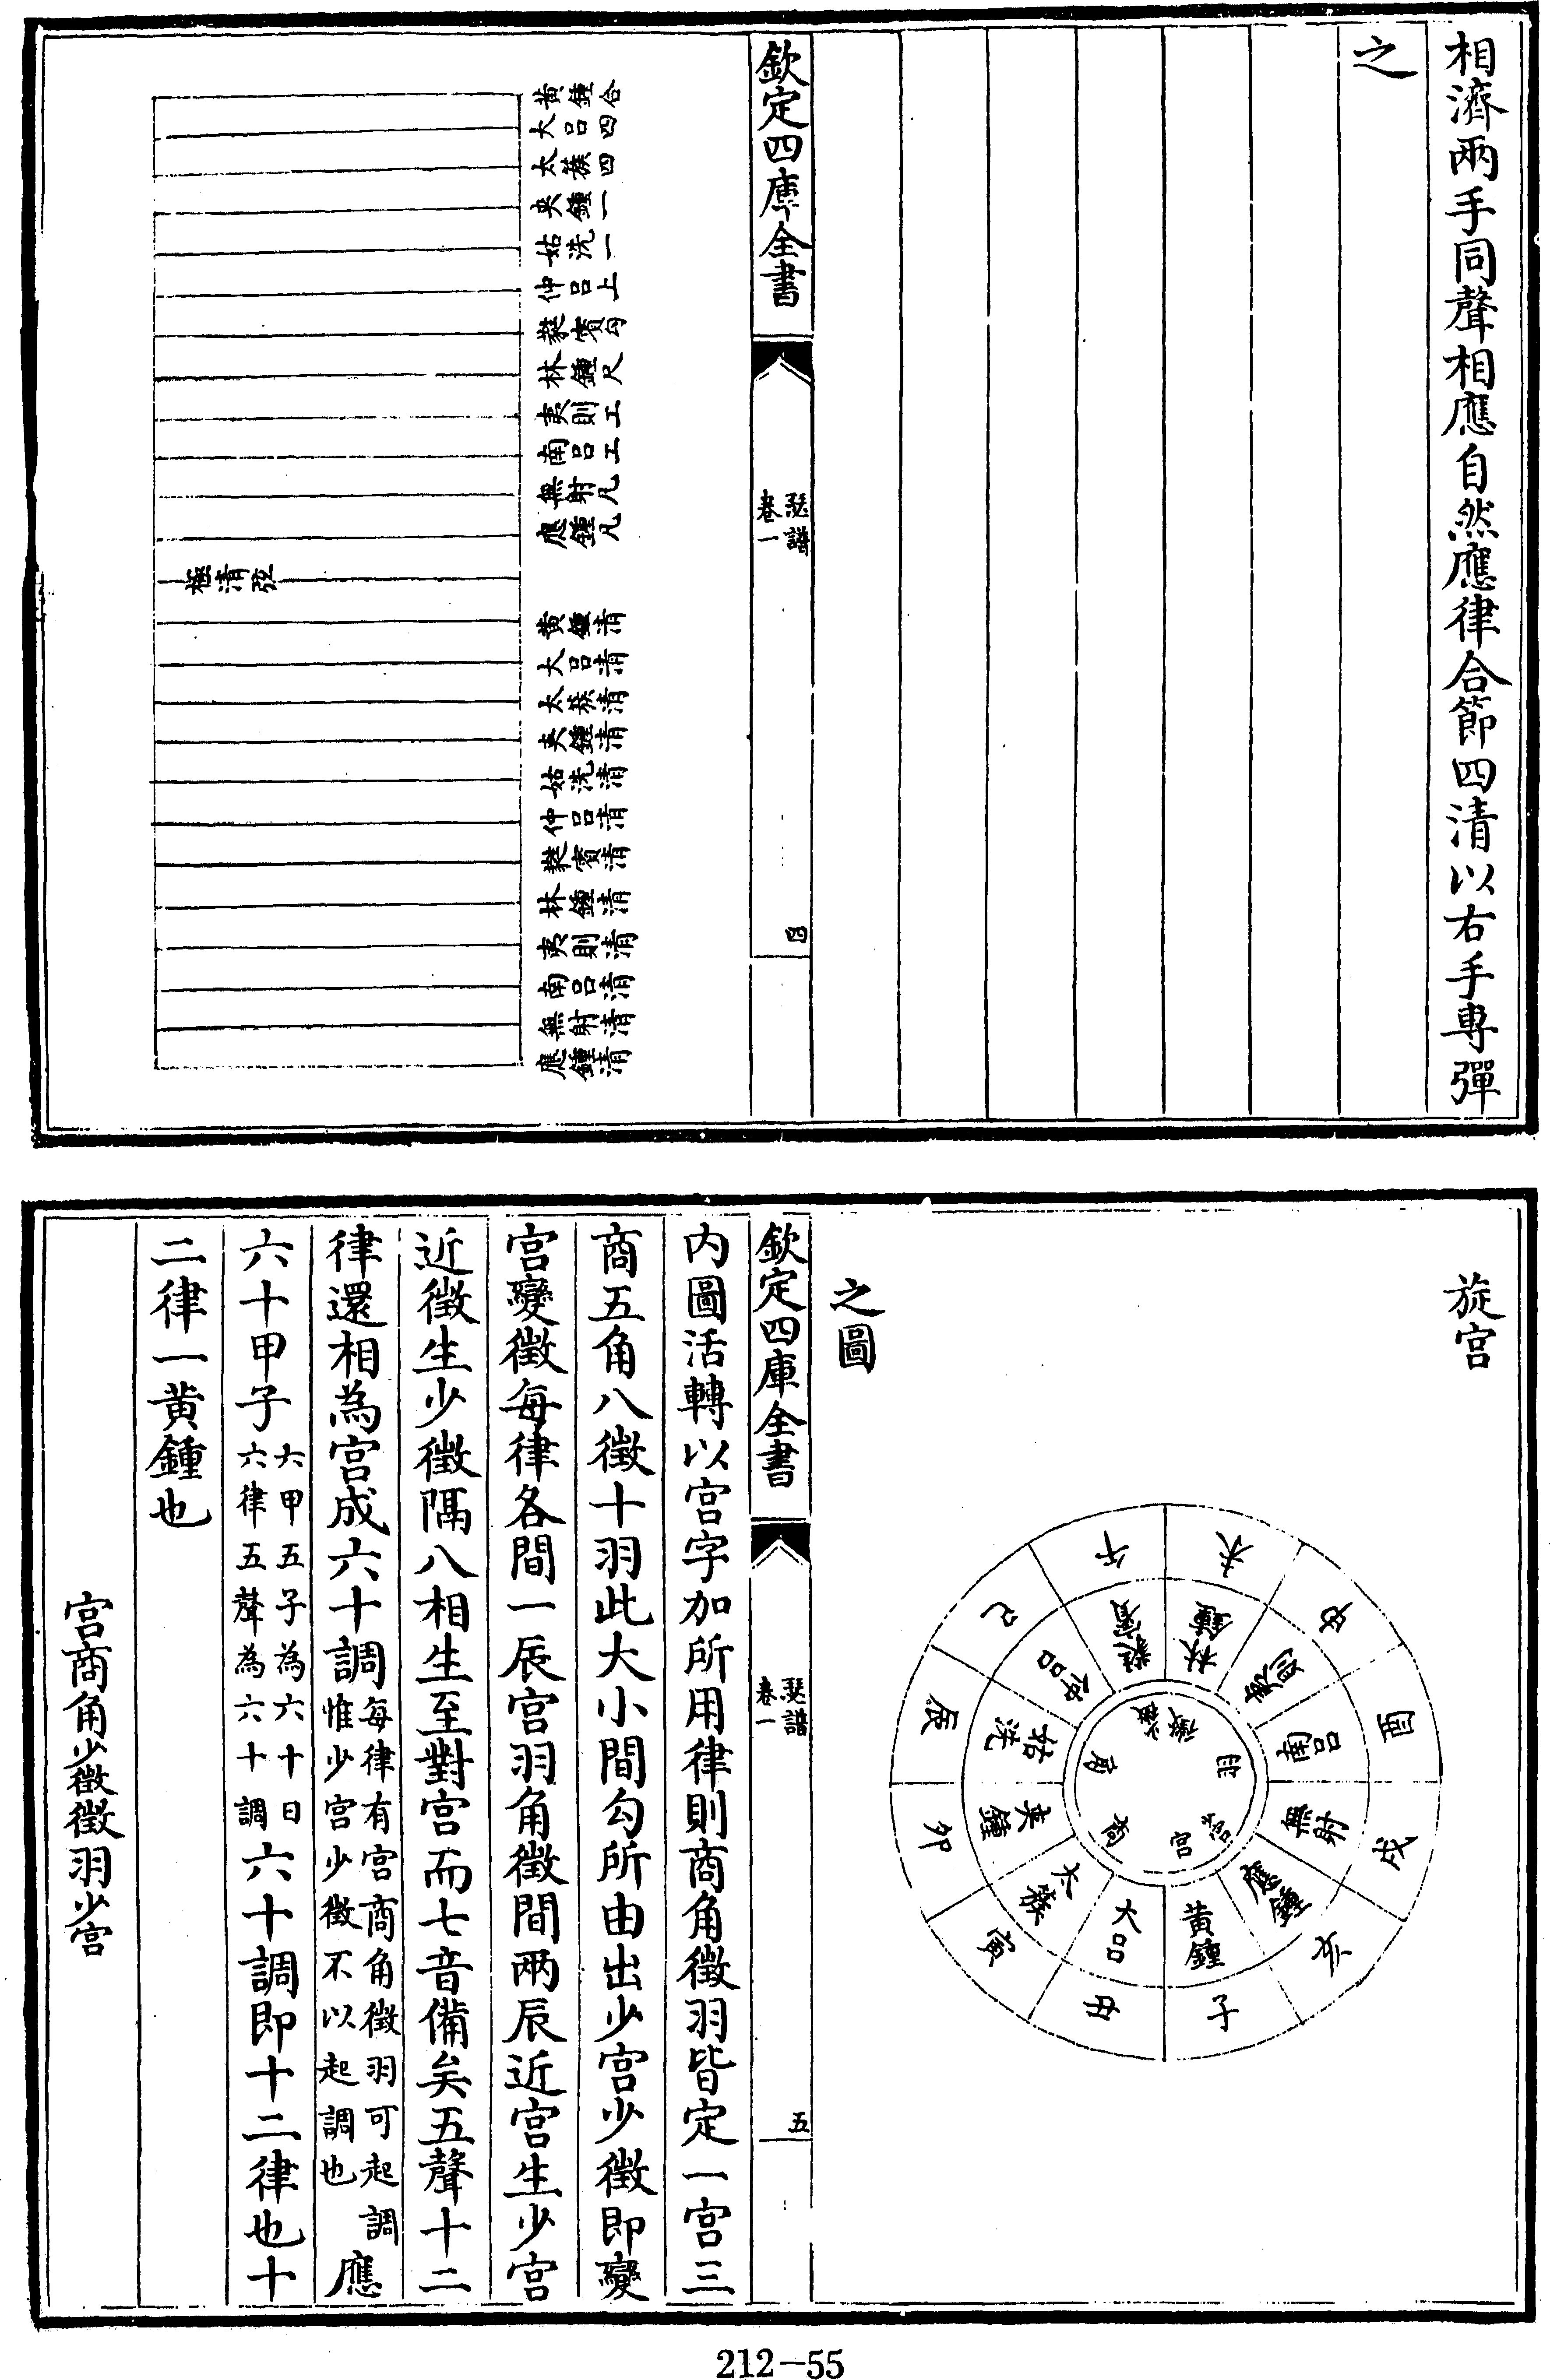 相濟兩手同聲相應自然應律合節四清以右手專彈
之
欽定四庫全書
瑟譜
卷一
四
黃鍾合
大呂四
太簇四
夾鍾一
姑洗一
仲呂上
蕤賓勾
林鍾尺
夷則工
南呂工
無射凡
應鍾凡
極清弦
黃鍾清
大呂清
太簇清
夾鍾清
姑洗清
仲呂清
蕤賓清
林鍾清
夷則清
南呂清
無射清
應鍾清
旋宫
子
丑
寅
卯
辰
巳
午
未
申
酉
戌
亥
黃鍾
大呂
太簇
夾鍾
姑洗
仲呂
蕤賓
林鍾
夷則
南呂
無射
應鍾
宫
商
角
少徵
徵
羽
少宫
之圖
欽定四庫全書
瑟譜
卷一
五
内圖活轉以宫字加所用律則商角徵羽皆定一宫三
商五角八徵十羽此大小間勾所由出少宫少徵即變
宫變徵每律各間一辰宫羽角徵間兩辰近宫生少宫
近徵生少徵隔八相生至對宫而七音備矣五聲十二
律還相為宫成六十調每律有宫商角徵羽可起調惟少宫少徵不以起調也應
六十甲子六甲五子為六十日六律五聲為六十調六十調即十二律也十
二律一黃鍾也
宫商角少徵徵羽少宫
212-55